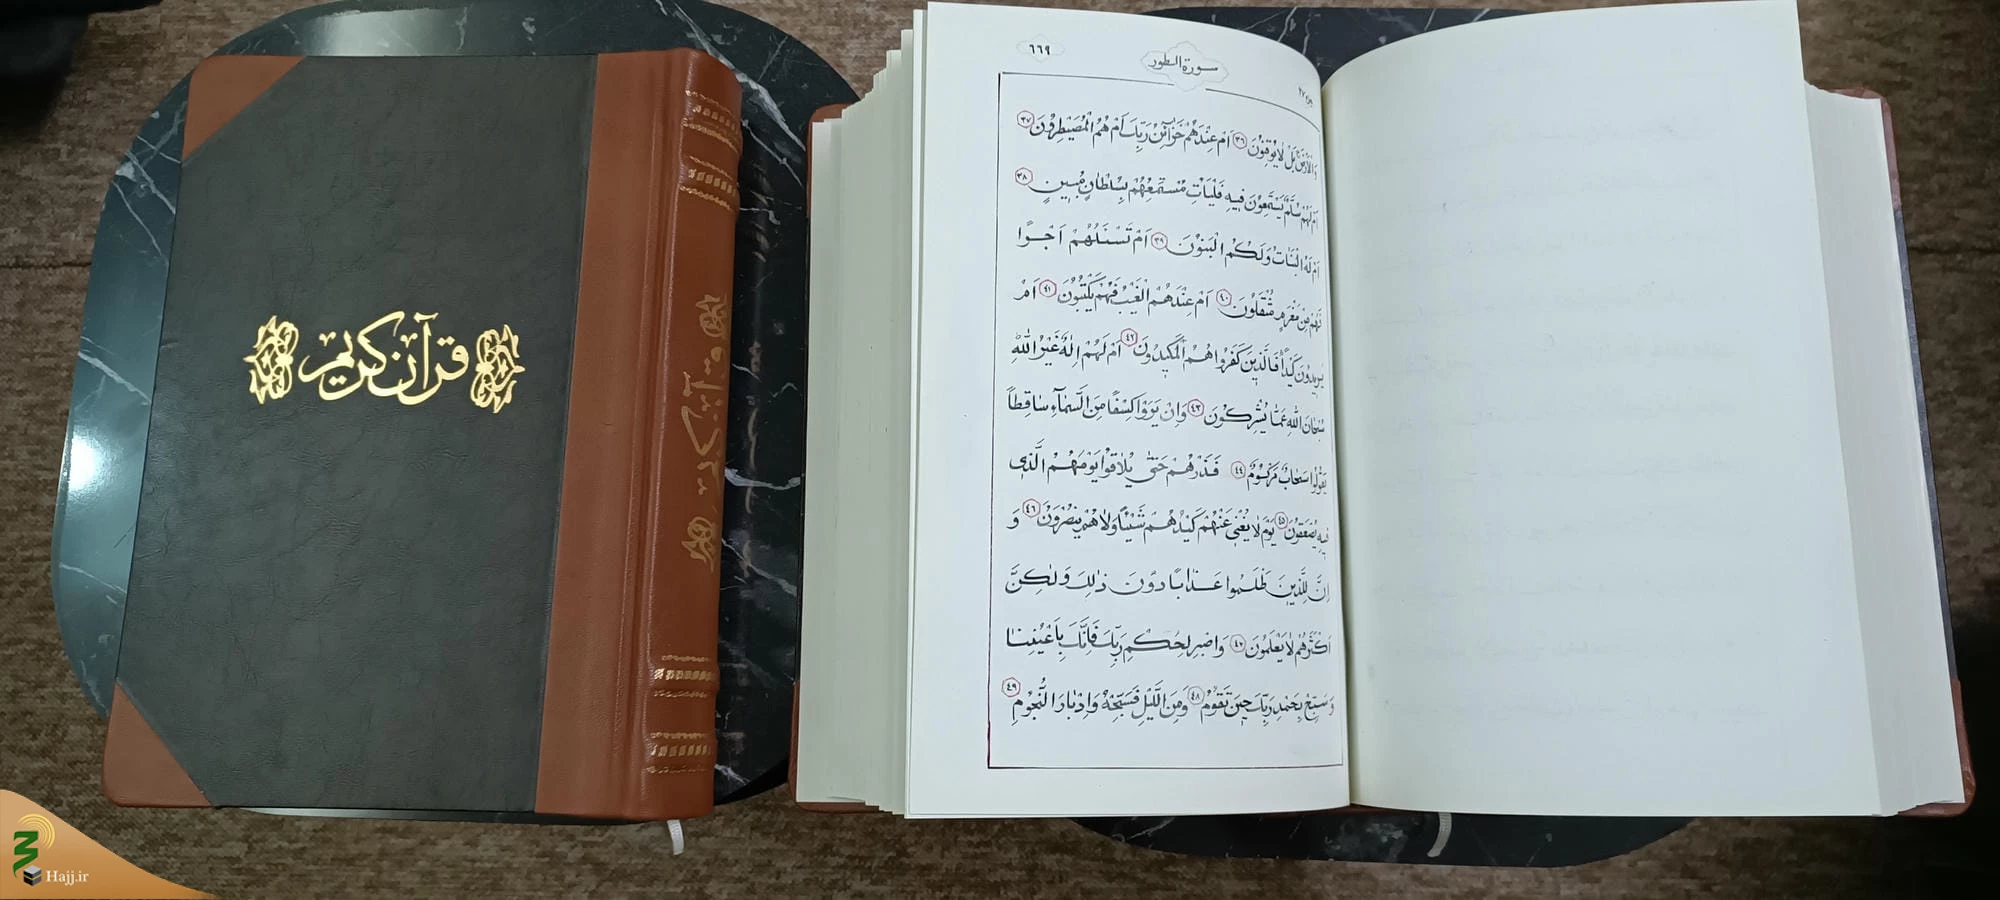 قرآن کریم
قرآن کریم
٦٦٩
سورة الطور
جزء ٢٧
وَالْاَرْضَ بَلْ لَايُوقِنُونَ ٣٦ اَمْ عِنْدَهُمْ خَزَآئِنُ رَبِّكَ اَمْ هُمُ الْمُصَيْطِرُونَ ٣٧
اَمْ لَهُمْ سُلَّمٌ يَسْتَمِعُونَ فِيهِ فَلْيَأْتِ مُسْتَمِعُهُمْ بِسُلْطَانٍ مُبِينٍ ٣٨
اَمْ لَهُ الْبَنَاتُ وَلَكُمُ الْبَنُونَ ٣٩ اَمْ تَسْئَلُهُمْ اَجْرًا
فَهُمْ مِنْ مَغْرَمٍ مُثْقَلُونَ ٤٠ اَمْ عِنْدَهُمُ الْغَيْبُ فَهُمْ يَكْتُبُونَ ٤١ اَمْ
يُرِيدُونَ كَيْدًا فَالَّذِينَ كَفَرُوا هُمُ الْمَكِيدُونَ ٤٢ اَمْ لَهُمْ اِلٰهٌ غَيْرُ اللّٰهِ
سُبْحَانَ اللّٰهِ عَمَّا يُشْرِكُونَ ٤٣ وَاِنْ يَرَوْا كِسْفًا مِنَ السَّمَآءِ سَاقِطًا
يَقُولُوا سَحَابٌ مَرْكُومٌ ٤٤ فَذَرْهُمْ حَتّٰى يُلَاقُوا يَوْمَهُمُ الَّذِى
فِيهِ يُصْعَقُونَ ٤٥ يَوْمَ لَا يُغْنِى عَنْهُمْ كَيْدُهُمْ شَيْئًا وَلَا هُمْ يُنْصَرُونَ ٤٦ وَ
اِنَّ لِلَّذِينَ ظَلَمُوا عَذَابًا دُونَ ذٰلِكَ وَلٰكِنَّ
اَكْثَرَهُمْ لَا يَعْلَمُونَ ٤٧ وَاصْبِرْ لِحُكْمِ رَبِّكَ فَاِنَّكَ بِاَعْيُنِنَا
وَسَبِّحْ بِحَمْدِ رَبِّكَ حِينَ تَقُومُ ٤٨ وَمِنَ الَّيْلِ فَسَبِّحْهُ وَاِدْبَارَ النُّجُومِ ٤٩
Hajj.ir